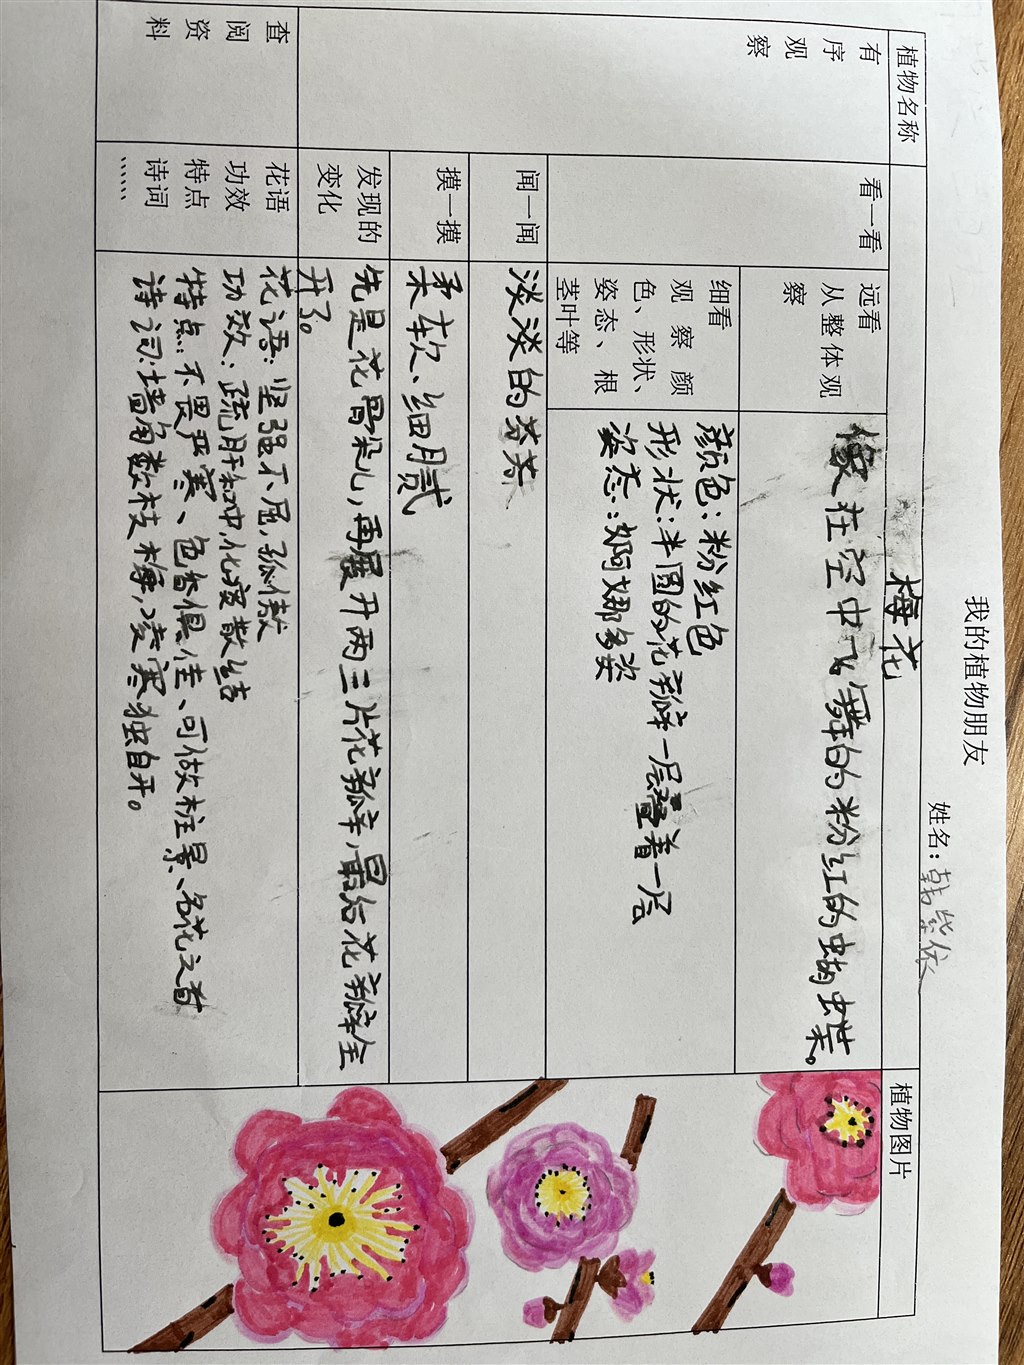 我的植物朋友
姓名：韩紫依
植物名称
梅花
植物图片
有序观察
看一看
远看
从整体观察
像在空中飞舞的粉红的蝴蝶。
细看
观察颜色、形状、姿态、根茎叶等
颜色：粉红色
形状：半圆的花瓣一层叠着一层
姿态：婀娜多姿
闻一闻
淡淡的芬芳
摸一摸
柔软、细腻
发现的变化
先是花骨朵儿，再展开两三片花瓣，最后花瓣全
开了。
查阅资料
花语
功效
特点
诗词
……
花语：坚强不屈，孤傲
功效：疏肝和中，化痰散结
特点：不畏严寒、色香俱佳、可做桩景、名花之首
诗词：墙角数枝梅，凌寒独自开。